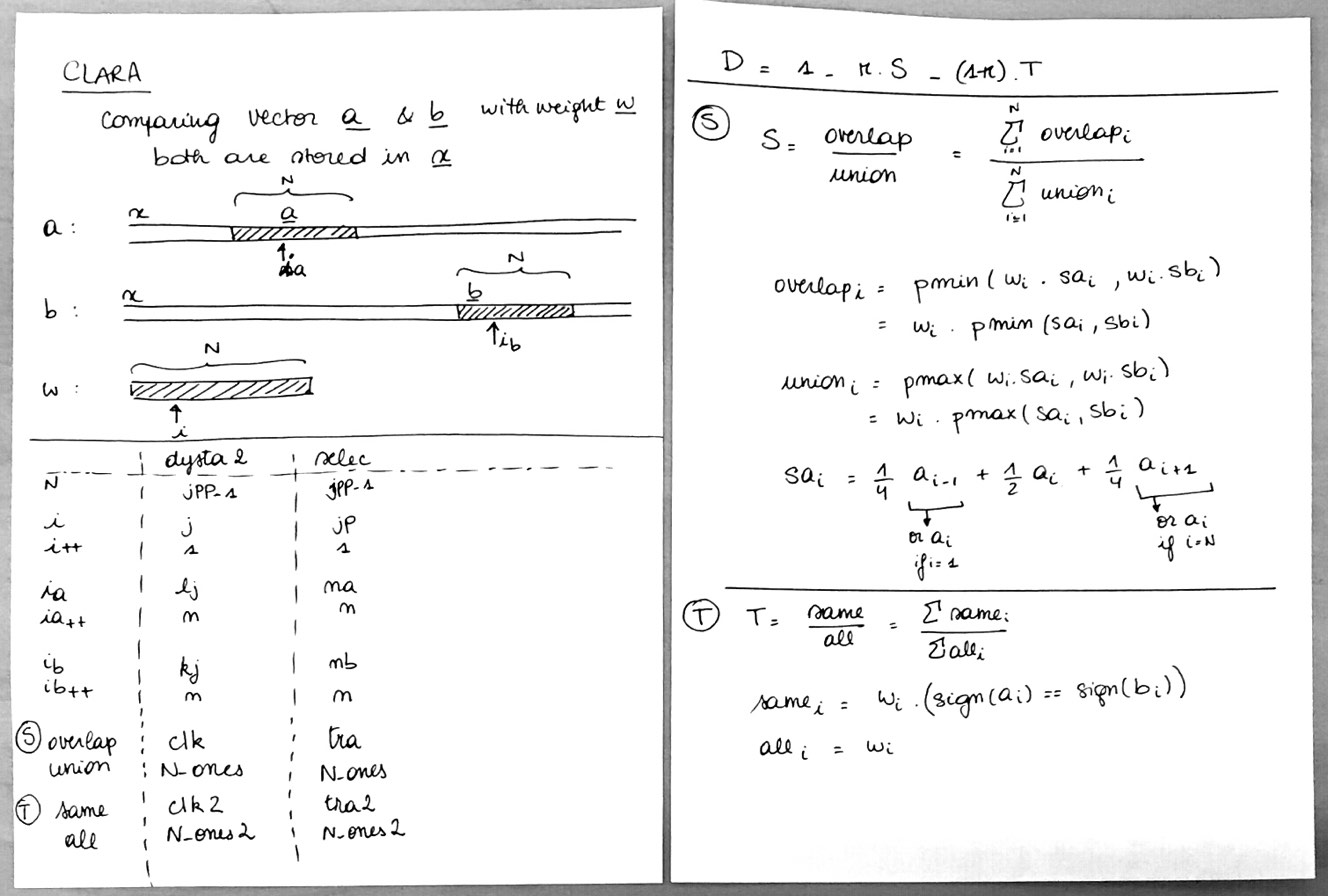 CLARA
Comparing vector a & b with weight w
both are stored in x
N
a : x a
ia
N
b : x b
ib
N
w :
i
dysta2 selec
N jpp-1 jpp-1
i j jp
i++ 1 1
ia lj na
ia++ n n
ib kj nb
ib++ n n
Ⓢ overlap clk tra
union N_ones N_ones
Ⓣ same clk2 tra2
all N_ones2 N_ones2
D = 1 - r.S - (1-r).T
Ⓢ S = overlap / union = Σ_{i=1}^{N} overlap_i / Σ_{i=1}^{N} union_i
overlap_i = pmin(w_i . sa_i , w_i . sb_i)
= w_i . pmin(sa_i , sb_i)
union_i = pmax(w_i . sa_i , w_i . sb_i)
= w_i . pmax(sa_i , sb_i)
sa_i = 1/4 a_{i-1} + 1/2 a_i + 1/4 a_{i+1}
or a_i or a_i
if i=1 if i=N
Ⓣ T = same / all = Σ same_i / Σ all_i
same_i = w_i . (sign(a_i) == sign(b_i))
all_i = w_i